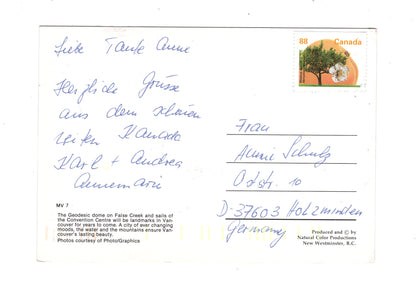 Liebe Tante Anne
Herzliche Grüsse
aus dem schönen
weiten Kanada
Karl + Andrea
Annemarie
MV 7
The Geodesic dome on False Creek and sails of
the Convention Centre will be landmarks in Van-
couver for years to come. A city of ever changing
moods, the water and the mountains ensure Van-
couver's lasting beauty.
Photos courtesy of Photo/Graphics
88 Canada
Frau
Annie Schulz
Oststr. 10
D-37603 Holzminden
Germany
Produced and © by
Natural Color Productions
New Westminster, B.C.